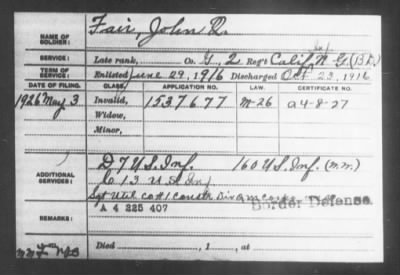 NAME OF SOLDIER: Fair, John R.
SERVICE: Late rank, Co. G, 2 Reg't Calif Inf N. G. (B.D.)
TERM OF SERVICE: Enlisted June 29, 1916 Discharged Oct 23, 1916
DATE OF FILING. CLASS. APPLICATION NO. LAW. CERTIFICATE NO.
1926 May 3 Invalid, 1537677 M-26 a4-8-27
Widow,
Minor,
ADDITIONAL SERVICES: D 7 U.S. Inf. 160 U.S. Inf. (m.m.)
C 13 U.S. Inf
Sgt Util Co #1 Constr Div Qm Corps
Border Defense.
REMARKS: A 4 225 407
Died , 1 , at